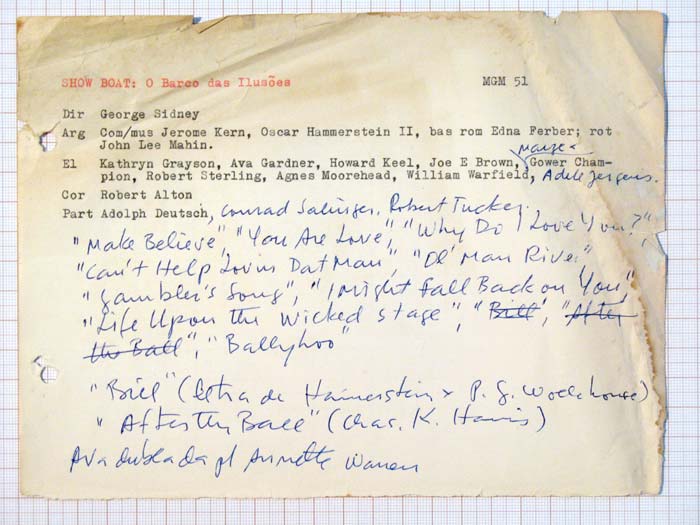 SHOW BOAT: O Barco das Ilusões MGM 51
Dir George Sidney
Arg Com/mus Jerome Kern, Oscar Hammerstein II, bas rom Edna Ferber; rot
John Lee Mahin.
Marge &
El Kathryn Grayson, Ava Gardner, Howard Keel, Joe E Brown, Gower Cham-
pion, Robert Sterling, Agnes Moorehead, William Warfield, Adele Jergens.
Cor Robert Alton
Part Adolph Deutsch, Conrad Salinger, Robert Tucker.
"Make Believe", "You Are Love", "Why Do I Love You?",
"Can't Help Lovin Dat Man", "Ol' Man River"
"Gambler's Song", "I Might Fall Back on You",
"Life Upon the Wicked Stage", "Bill", "After
the Ball", "Ballyhoo"
"Bill" (letra de Hammerstein & P. G. Wodehouse)
"After the Ball" (Chas. K. Harris)
Ava dublada p/ Annette Warren